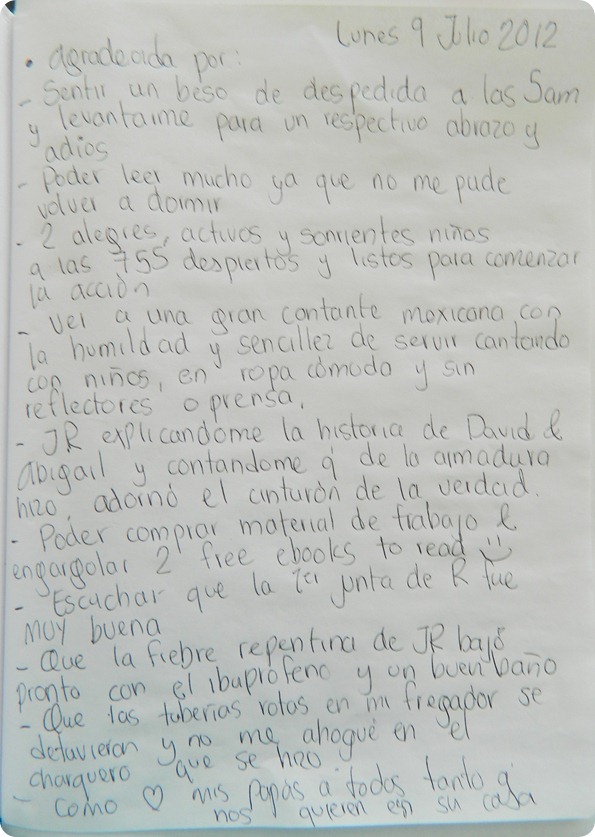 Lunes 9 Julio 2012
• agradecida por:
- Sentir un beso de despedida a las 5am
y levantarme para un respectivo abrazo y
adios
- Poder leer mucho ya que no me pude
volver a dormir
- 2 alegres, activos y sonrientes niños
a las 755 despiertos y listos para comenzar
la acción
- Ver a una gran cantante mexicana con
la humildad y sencillez de servir cantando
con niños, en ropa cómoda y sin
reflectores o prensa.
- JR explicandome la historia de David &
Abigail y contandome q' de la armadura
hizo adornó el cinturón de la verdad.
- Poder comprar material de trabajo &
engargolar 2 free ebooks to read
- Escuchar que la 1era junta de R fue
MUY buena
- Que la fiebre repentina de JR bajó
pronto con el ibuprofeno y un buen baño
- Que las tuberias rotas en mi fregador se
detuvieron y no me ahogué en el
charquero que se hizo
- Como ♡ mis papas a todos tanto q'
nos quieren en su casa